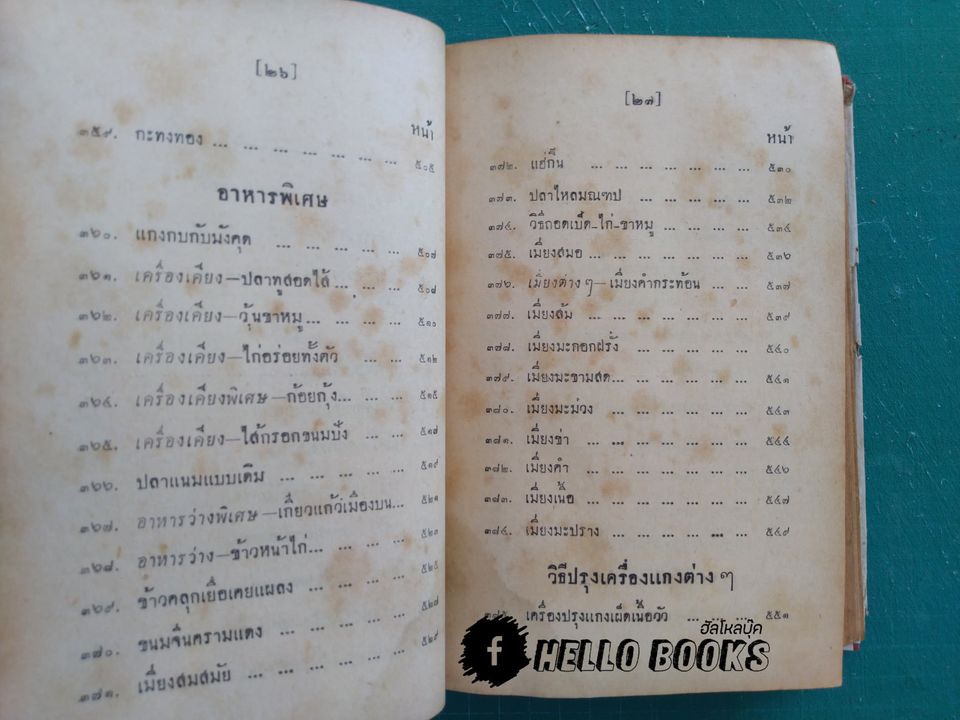 [๒๖]
หน้า
๓๕๙. กะทงทอง ... ... ... ... ... ... ... ๕๐๕
อาหารพิเศษ
๓๖๐. แกงกบกับมังคุด ... ... ... ... ๕๐๗
๓๖๑. เครื่องเคียง—ปลาทูสอดไส้... ... ... ๕๐๘
๓๖๒. เครื่องเคียง—วุ้นขาหมู... ... ... ... ๕๑๐
๓๖๓. เครื่องเคียง—ไก่อร่อยทั้งตัว ... ... ๕๑๒
๓๖๔. เครื่องเคียงพิเศษ—ก้อยกุ้ง... ... ... ๕๑๕
๓๖๕. เครื่องเคียง—ไส้กรอกขนมปัง ... ... ๕๑๗
๓๖๖. ปลาแนมแบบเดิม ... ... ... ... ๕๑๙
๓๖๗. อาหารว่างพิเศษ—เกี่ยวแก้วเมืองบน... ๕๒๑
๓๖๘. อาหารว่าง—ข้าวหน้าไก่... ... ... ... ๕๒๓
๓๖๙. ข้าวคลุกเยื่อเคยแผลง ... ... ... ... ๕๒๕
๓๗๐. ขนมจีนครามแดง ... ... ... ... ... ๕๒๗
๓๗๑. เมี่ยงสมสมัย ... ... ... ... ... ... ๕๒๙
[๒๗]
หน้า
๓๗๒. แฮ่กึ๊น ... ... ... ... ... ... ... ๕๓๐
๓๗๓. ปลาไหลมณฑป ... ... ... ... ... ๕๓๒
๓๗๔. วิธีถอดเป็ด-ไก่-ขาหมู ... ... ... ... ๕๓๔
๓๗๕. เมี่ยงสมอ ... ... ... ... ... ... ... ๕๓๖
๓๗๖. เมี่ยงต่าง ๆ—เมี่ยงคำกระท้อน ... ... ๕๓๗
๓๗๗. เมี่ยงส้ม ... ... ... ... ... ... ... ๕๓๙
๓๗๘. เมี่ยงมะกอกฝรั่ง ... ... ... ... ... ๕๔๐
๓๗๙. เมี่ยงมะขามสด... ... ... ... ... ... ๕๔๑
๓๘๐. เมี่ยงมะม่วง ... ... ... ... ... ... ๕๔๓
๓๘๑. เมี่ยงข่า ... ... ... ... ... ... ... ๕๔๔
๓๘๒. เมี่ยงคำ ... ... ... ... ... ... ... ๕๔๖
๓๘๓. เมี่ยงเนื้อ ... ... ... ... ... ... ... ๕๔๗
๓๘๔. เมี่ยงมะปราง ... ... ... ... ... ... ๕๔๙
วิธีปรุงเครื่องแกงต่าง ๆ
๓๘๕. เครื่องปรุงแกงเผ็ดเนื้อวัว ... ... ... ๕๕๑
ฮัลโหลบุ๊ค
f HELLO BOOKS